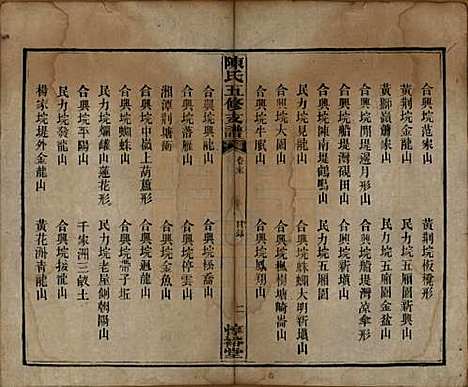 合興垸范家山
黃荆垸金龍山
黃獅嶺黃龍山
合興垸開堤邊月形山
合興垸船堤灣硯田山
合興垸陳南堤鶴鳴山
民力垸見龍山
合興垸大園山
合興垸牛眠山
黃荆垸板橙形
民力垸五厰圖新興山
民力垸五厰圖金盆山
合興垸船堤灣凉傘形
合興垸新壋山
民力垸五厰園
合興垸蛛螂大明新壋山
合興垸楓樹塘崙山
合興垸鳳翔山
陳氏五修支譜
卷末
目錄
二
惇裕堂
合興垸落雁山
湘潭荆塘衝
合興垸中嶺上葫蘆形
合興垸蜘蛛山
民力垸爛𡾋山蓮花形
民力垸發龍山
合興垸平陽山
楊家垸堤外金龍山
合興垸松喬山
合興垸停雲山
合興垸迴龍山
合興垸金魚山
合興垸需子坵
民力垸老屋劍朝陽山
千家洲三畝土
合興垸拔龍山
黃花洲青龍山